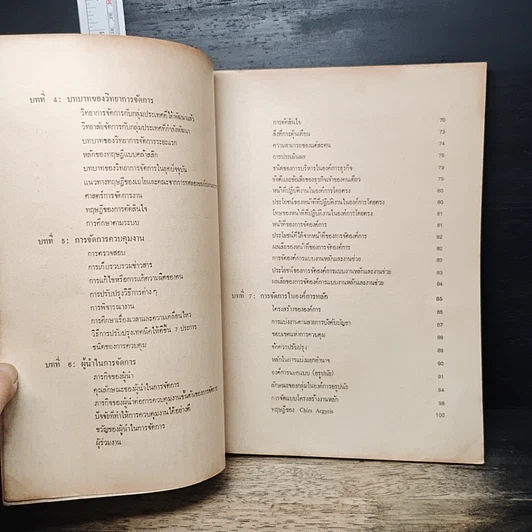 บทที่ 4: บทบาทของวิทยาการจัดการ
วิทยาการจัดการกับกลุ่มประเทศที่ได้พัฒนาแล้ว
วิทยาลัยจัดการกับกลุ่มประเทศที่กำลังพัฒนา
บทบาทของวิทยาการจัดการระยะแรก
หลักของทฤษฎีแบบคลาสสิก
บทบาทของวิทยาการจัดการในยุคปัจจุบัน
แนวทางทฤษฎีของเมโยและคณะจากการทดลอง
ศาสตร์การจัดการงาน
ทฤษฎีของการตัดสินใจ
การศึกษาตามระบบ
บทที่ 5: การจัดการควบคุมงาน
การตรวจสอบ
การเก็บรวบรวมข่าวสาร
การแก้ไขหรือการแก้ความผิดของคน
การปรับปรุงวิธีการต่างๆ
การพิจารณางาน
การศึกษาเรื่องเวลาและความเคลื่อนไหว
วิธีการปรับปรุงเทคนิคให้ดีขึ้น 7 ประการ
ชนิดของการควบคุม
บทที่ 6: ผู้นำในการจัดการ
ภารกิจของผู้นำ
คุณลักษณะของผู้นำในการจัดการ
ภารกิจของผู้นำต่อการควบคุมงานขั้นต้นของการจัดการ
ปัจจัยที่ทำให้การควบคุมงานได้อย่างดี
ขวัญของผู้นำในการจัดการ
ผู้ร่วมงาน
การตัดสินใจ 70
สิ่งที่ควรตักเตือน 73
ความสามารถของแต่ละคน 74
การประเมินผล 75
ชนิดของการบริหารในองค์การธุรกิจ 76
ข้อดีและข้อเสียของธุรกิจเจ้าของคนเดียว 77
หน้าที่ปฏิบัติในองค์การโดยตรง 78
ประโยชน์ของหน้าที่ที่ปฏิบัติงานในองค์การโดยตรง 79
โทษของหน้าที่ที่ปฏิบัติงานในองค์การโดยตรง 80
หน้าที่ของการจัดองค์การ 80
ประโยชน์ที่ได้จากหน้าที่ของการจัดองค์การ 81
ผลเสียของหน้าที่ของการจัดองค์การ 82
การจัดองค์การแบบงานหลักและงานช่วย 82
ประโยชน์ของการจัดองค์การแบบงานหลักและงานช่วย 83
ผลเสียของการจัดองค์การแบบงานหลักและงานช่วย 84
บทที่ 7: การจัดการในองค์การหลัก 85
โครงสร้างขององค์การ 85
การแบ่งงานตามสายการบังคับบัญชา 86
ขอบเขตแห่งการควบคุม 87
ข้อควรปรับปรุง 88
หลักในการแบ่งแยกอำนาจ 90
องค์การนอกแบบ (อรูปนัย) 91
ลักษณะของกลุ่มในองค์การอรูปนัย 94
การจัดแบบโครงสร้างงานหลัก 98
ทฤษฎีของ Chris Argyris 100